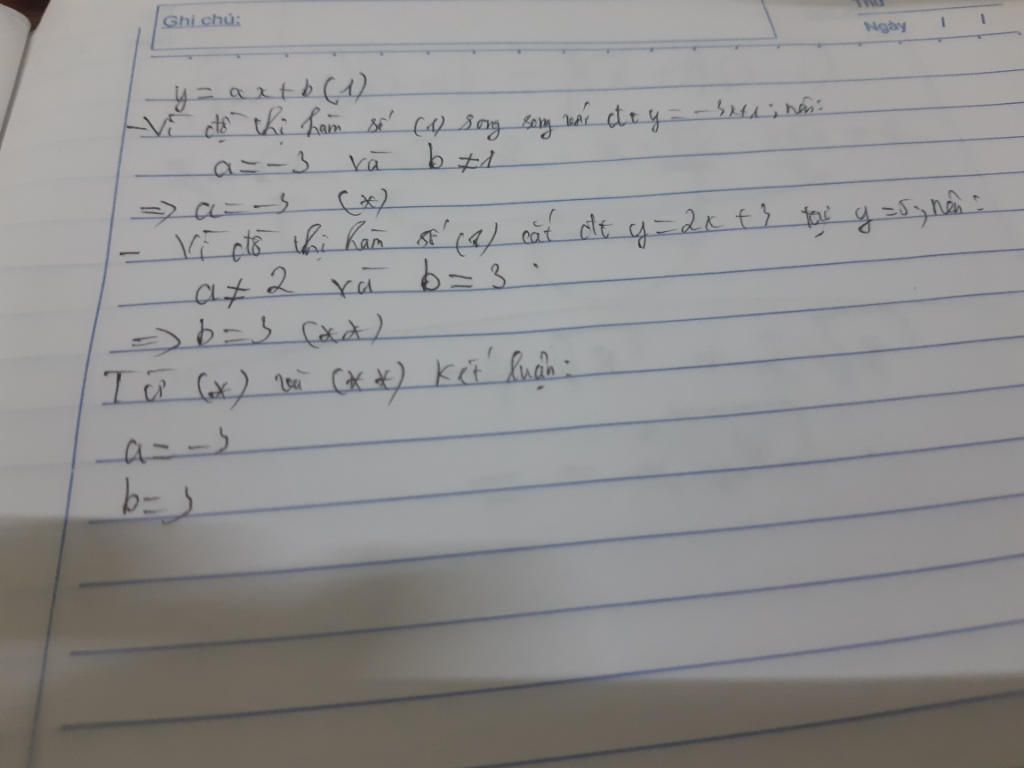 Ghi chú:
Thứ
Ngày / /
y = ax + b (1)
- Vì đồ thị hàm số (1) song song với đt y = -3x+1; nên:
a = -3 và b ≠ 1
=> a = -3 (*)
- Vì đồ thị hàm số (1) cắt đt y = 2x + 3 tại y = 5; nên:
a ≠ 2 và b = 3
=> b = 3 (**)
Từ (*) và (**) kết luận:
a = -3
b = 3